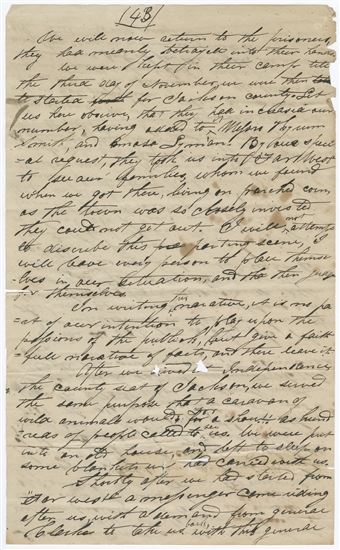 (43)
We will now return to the prisoners,
they had meanly betrayed into their hands
we were kept in their camp till
the third day of November, we were then
started for Jackson county. Let
us here observe, that they had increased our
number, having added to Hyrum
Smith, and Amasa Lyman. By our speci=
=al request, they took us into Far West
to see our families, whom we found
when we got there, living on parched corn,
as the town was so closely invested
they could not get out. I will not attempt
to discribe this parting scene, I
will leave every person to place themse=
lves in our situation, and the then judge
for themselves.
In writing this narative, it is no pa=
=rt of our intention to play upon the
passions of the publick, but give a faith
=full naration of facts, and there leave it.
After we arived at Independance
the county seat of Jackson, we served
the same purpose that a caravan of
wild animals would for a show, as hund
=reds of people called to see us. We were put
into an old house, and left to sleep on
some blankets we had carried with us.
Shortly after we had started from
Far west a messenger came riding
after us, with a demand from general
Clark to take us back with this general